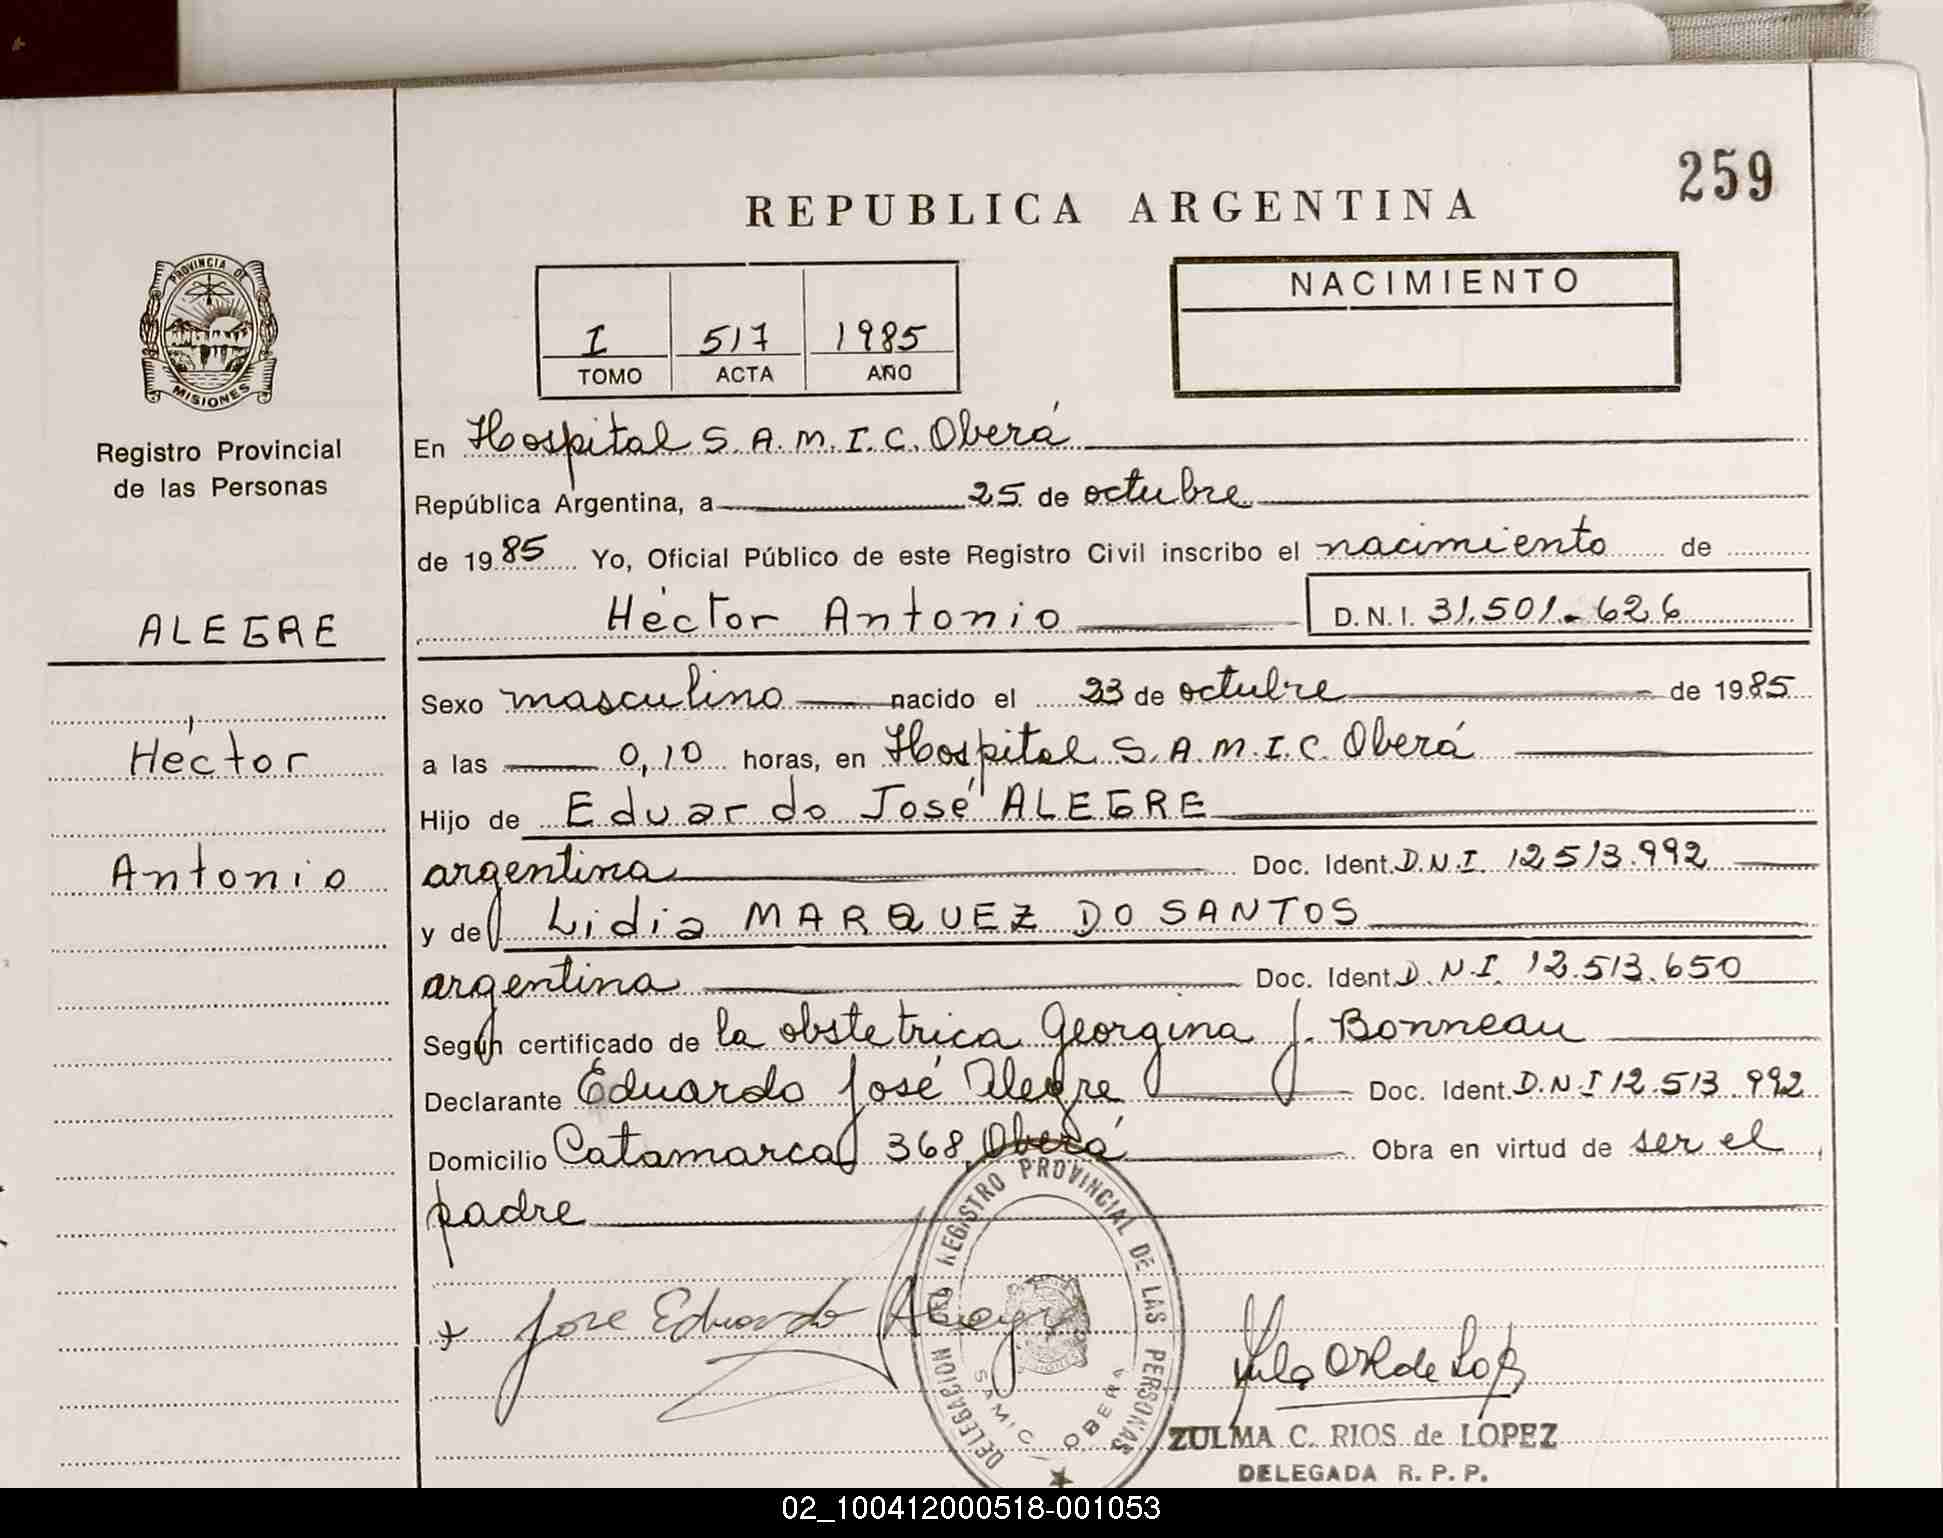 259
REPUBLICA ARGENTINA
NACIMIENTO
I 517 1985
TOMO ACTA AÑO
PROVINCIA DE MISIONES
Registro Provincial
de las Personas
En Hospital S.A.M.I.C. Oberá
República Argentina, a 25 de octubre
de 1985 Yo, Oficial Público de este Registro Civil inscribo el nacimiento de
ALEGRE
Héctor Antonio D.N.I. 31.501.626
Sexo masculino nacido el 23 de octubre de 1985
Héctor
a las 0,10 horas, en Hospital S.A.M.I.C. Oberá
Hijo de Eduardo José ALEGRE
Antonio
argentina Doc. Ident. D.N.I. 12.513.992
y de Lidia MARQUEZ DO SANTOS
argentina Doc. Ident. D.N.I. 12.513.650
Según certificado de la obstetrica Georgina J. Bonneau
Declarante Eduardo José Alegre Doc. Ident. D.N.I 12.513.992
Domicilio Catamarca 368 Oberá Obra en virtud de ser el
padre
DELEGACION DEL REGISTRO PROVINCIAL DE LAS PERSONAS
SAMIC OBERA
Jose Eduardo Alegre
ZULMA C. RIOS de LOPEZ
DELEGADA R. P. P.
02_100412000518-001053